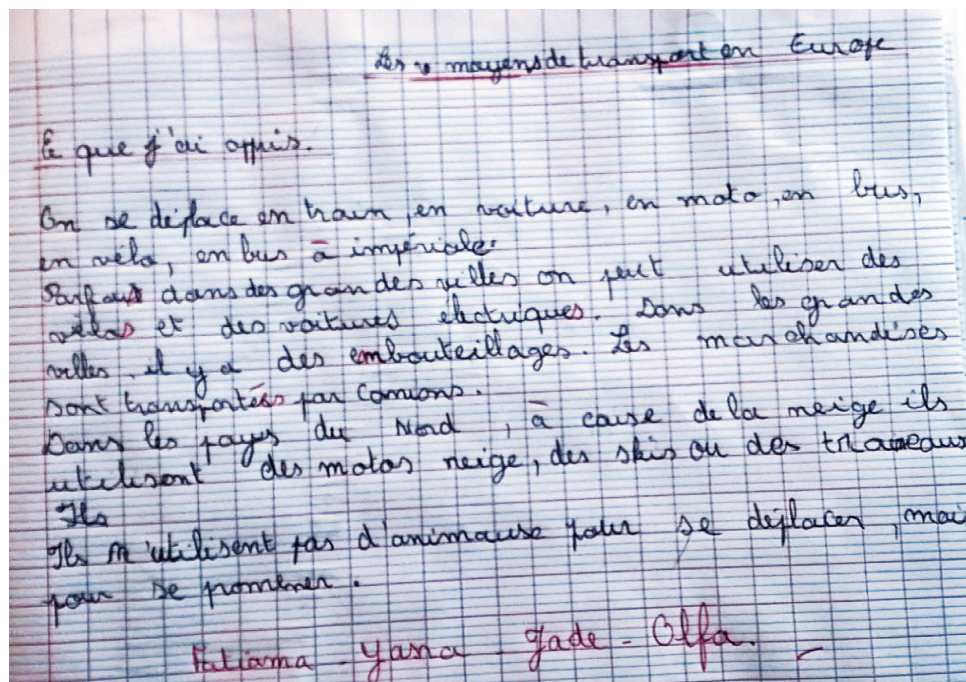 Les moyens de transport en Europe
Ce que j'ai appris.
On se déplace en train, en voiture, en moto, en bus,
en vélo, en bus à impériale.
Parfois dans des grandes villes on peut utiliser des
vélos et des voitures électriques. Dans les grandes
villes, il y a des embouteillages. Les marchandises
sont transportées par camions.
Dans les pays du Nord, à cause de la neige ils
utilisent des motos neige, des skis ou des traineaux
Ils
Ils n'utilisent pas d'animause pour se déplacer, mai
pour se promener.
Yana - Jade - Olfa.